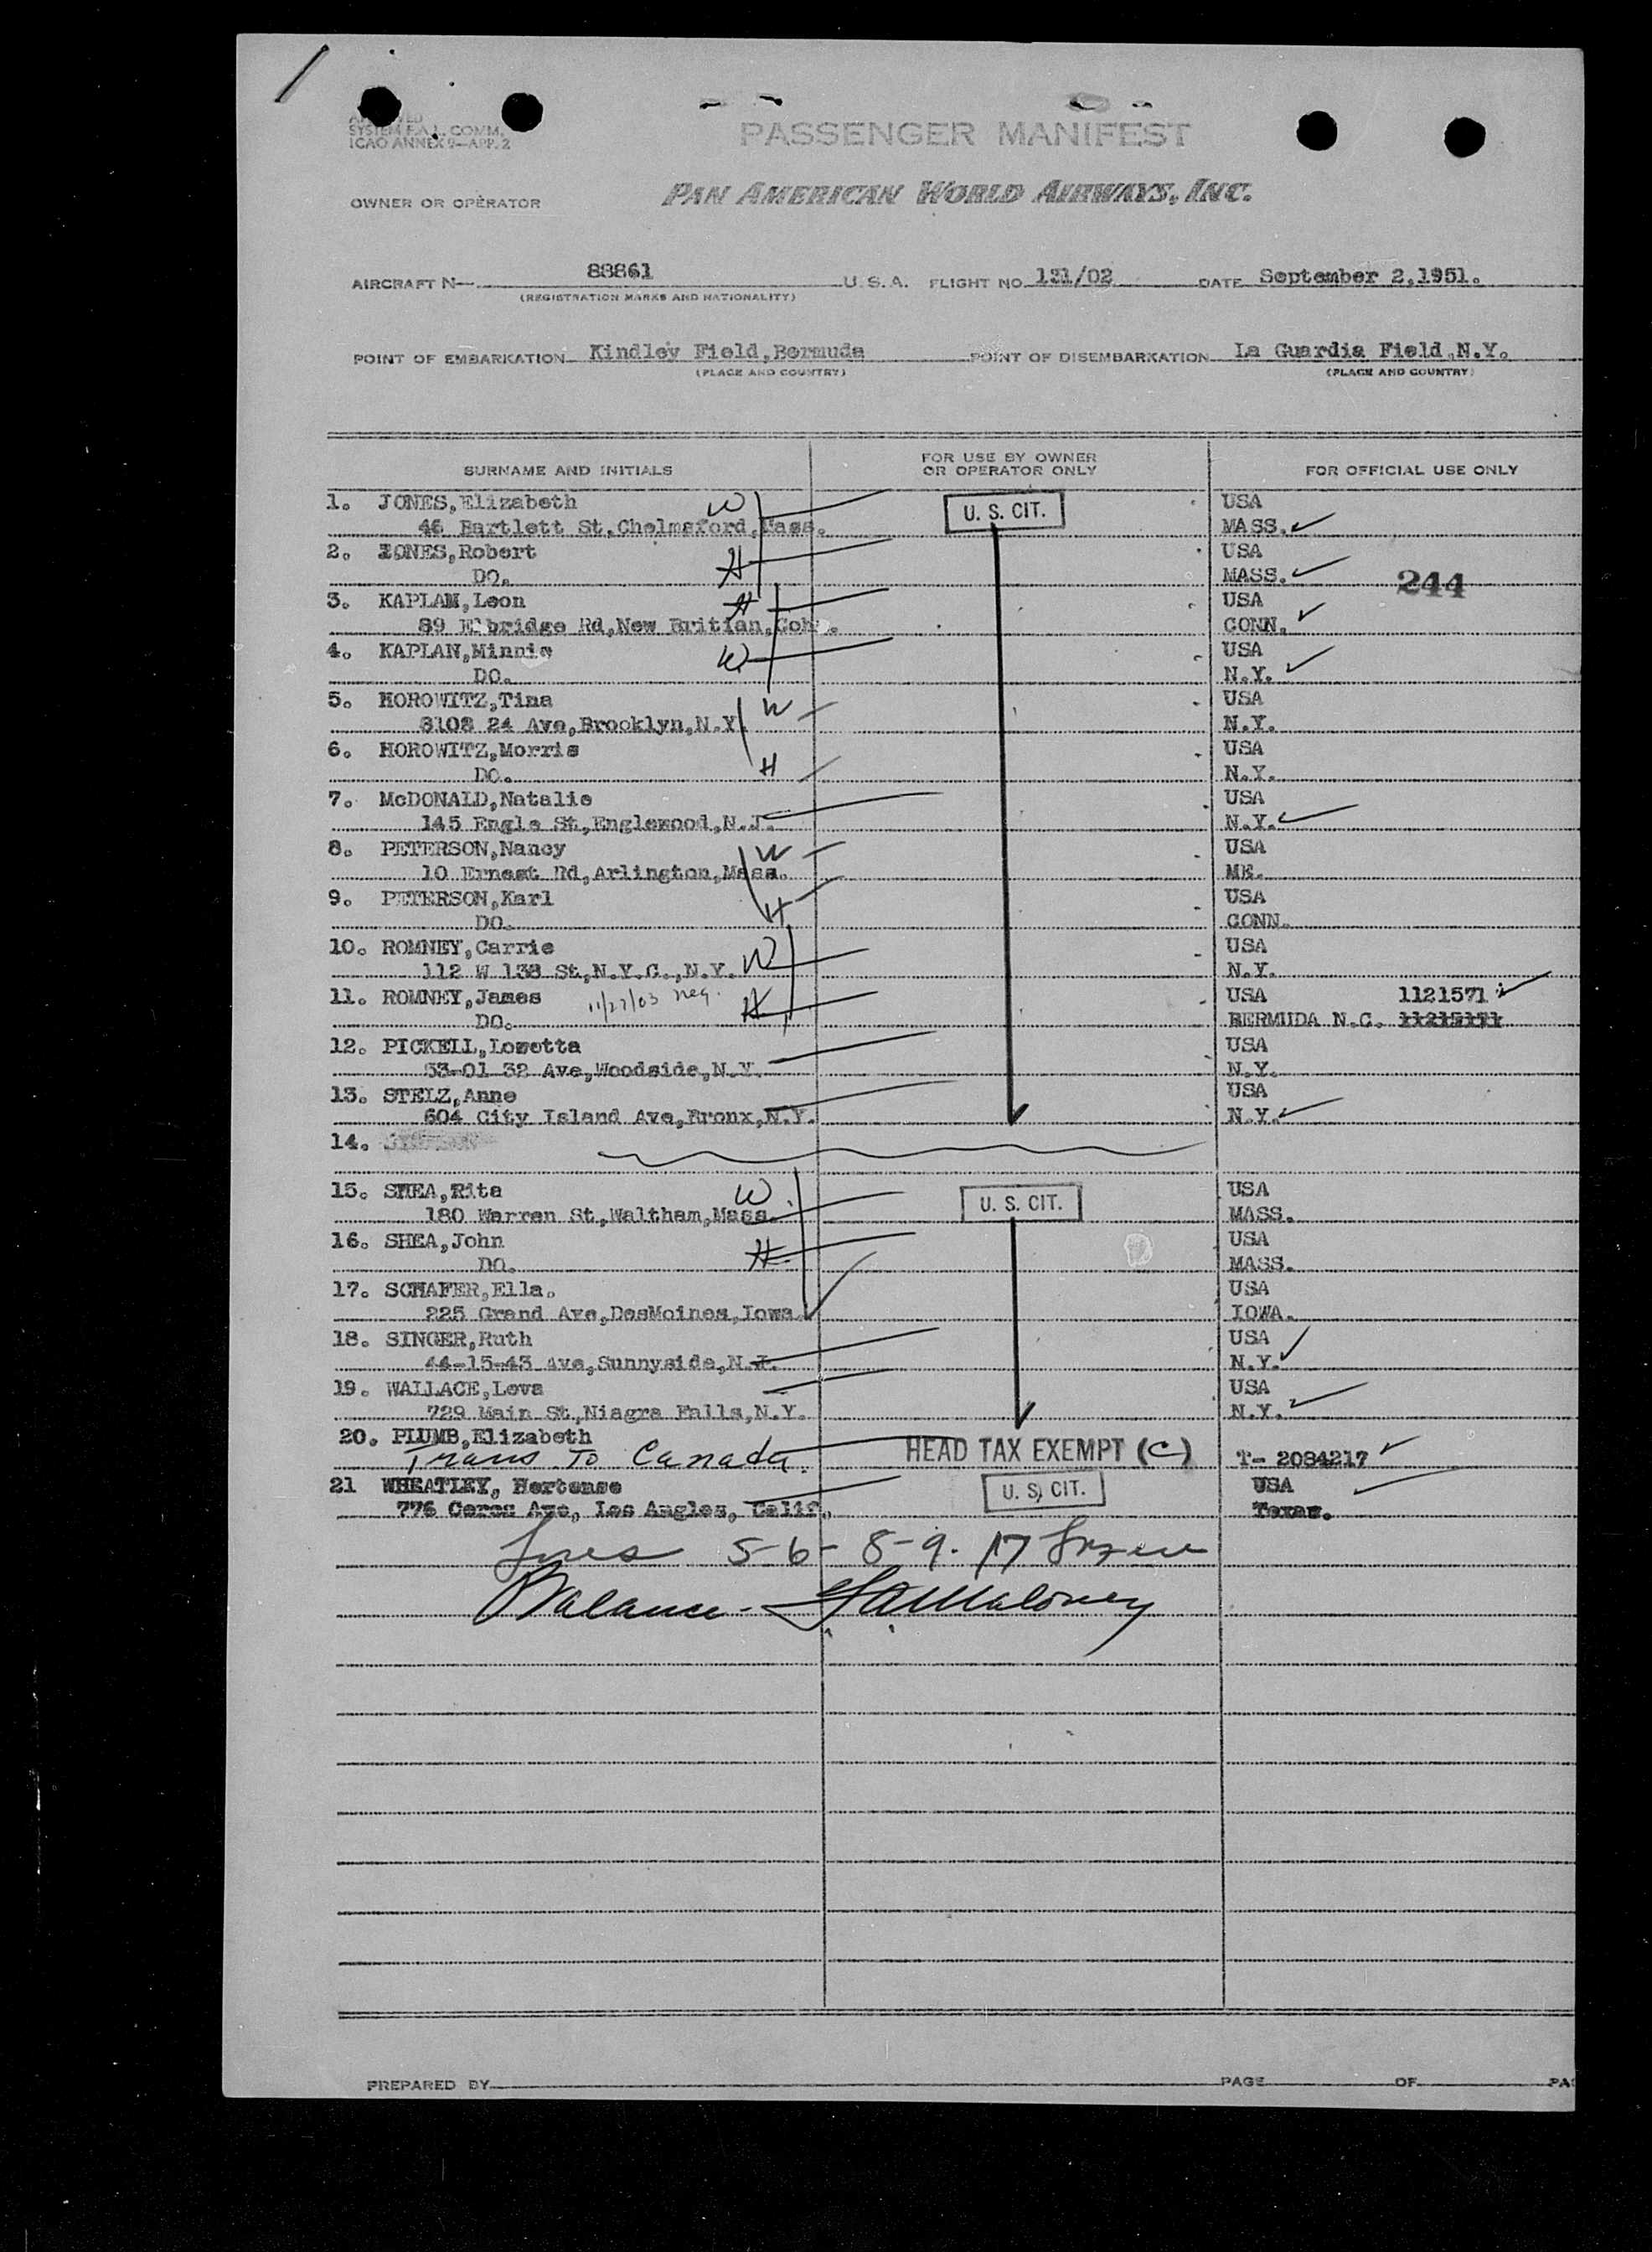 SYSTEM F.A.L. COMM.
ICAO ANNEX 9—APP. 2
PASSENGER MANIFEST
OWNER OR OPERATOR PAN AMERICAN WORLD AIRWAYS, INC.
AIRCRAFT N— 88861 U. S. A. FLIGHT NO. 131/02 DATE September 2,1951.
(REGISTRATION MARKS AND NATIONALITY)
POINT OF EMBARKATION Kindley Field,Bermuda POINT OF DISEMBARKATION La Guardia Field,N.Y.
(PLACE AND COUNTRY) (PLACE AND COUNTRY)
SURNAME AND INITIALS FOR USE BY OWNER OR OPERATOR ONLY FOR OFFICIAL USE ONLY
1. JONES,Elizabeth W U. S. CIT. USA
46 Bartlett St,Chelmsford,Mass. MASS.
2. JONES,Robert H USA
DO. MASS. 244
3. KAPLAN,Leon H USA
89 Elbridge Rd,New Britian,Conn. CONN.
4. KAPLAN,Minnie W USA
DO. N.Y.
5. HOROWITZ,Tina W USA
8108 24 Ave,Brooklyn,N.Y. N.Y.
6. HOROWITZ,Morris H USA
DO. N.Y.
7. McDONALD,Natalie USA
145 Engle St,Englewood,N.J. N.Y.
8. PETERSON,Nancy W USA
10 Ernest Rd,Arlington,Mass. ME.
9. PETERSON,Karl H USA
DO. CONN.
10. ROMNEY,Carrie W USA
112 W 138 St,N.Y.C.,N.Y. N.Y.
11. ROMNEY,James 11/27/03 neg. H USA 1121571
DO. BERMUDA N.C. 11215171
12. PICKELL,Loretta USA
53-01 32 Ave,Woodside,N.Y. N.Y.
13. STELZ,Anne USA
604 City Island Ave,Bronx,N.Y. N.Y.
14.
15. SHEA,Rita W U. S. CIT. USA
180 Warren St,Waltham,Mass. MASS.
16. SHEA,John H USA
DO. MASS.
17. SCHAFER,Ella. USA
225 Grand Ave,DesMoines,Iowa. IOWA.
18. SINGER,Ruth USA
44-15-43 Ave,Sunnyside,N.Y. N.Y.
19. WALLACE,Leva USA
729 Main St,Niagra Falls,N.Y. N.Y.
20. PLUMB,Elizabeth
Trans To Canada. HEAD TAX EXEMPT (C) T- 2084217
21 WHEATLEY, Hortense U. S. CIT. USA
776 Ceres Ave, Los Angles, Calif. Texas.
Lines 5-6- 8-9. 17
Balance- Maloney
PREPARED BY PAGE OF